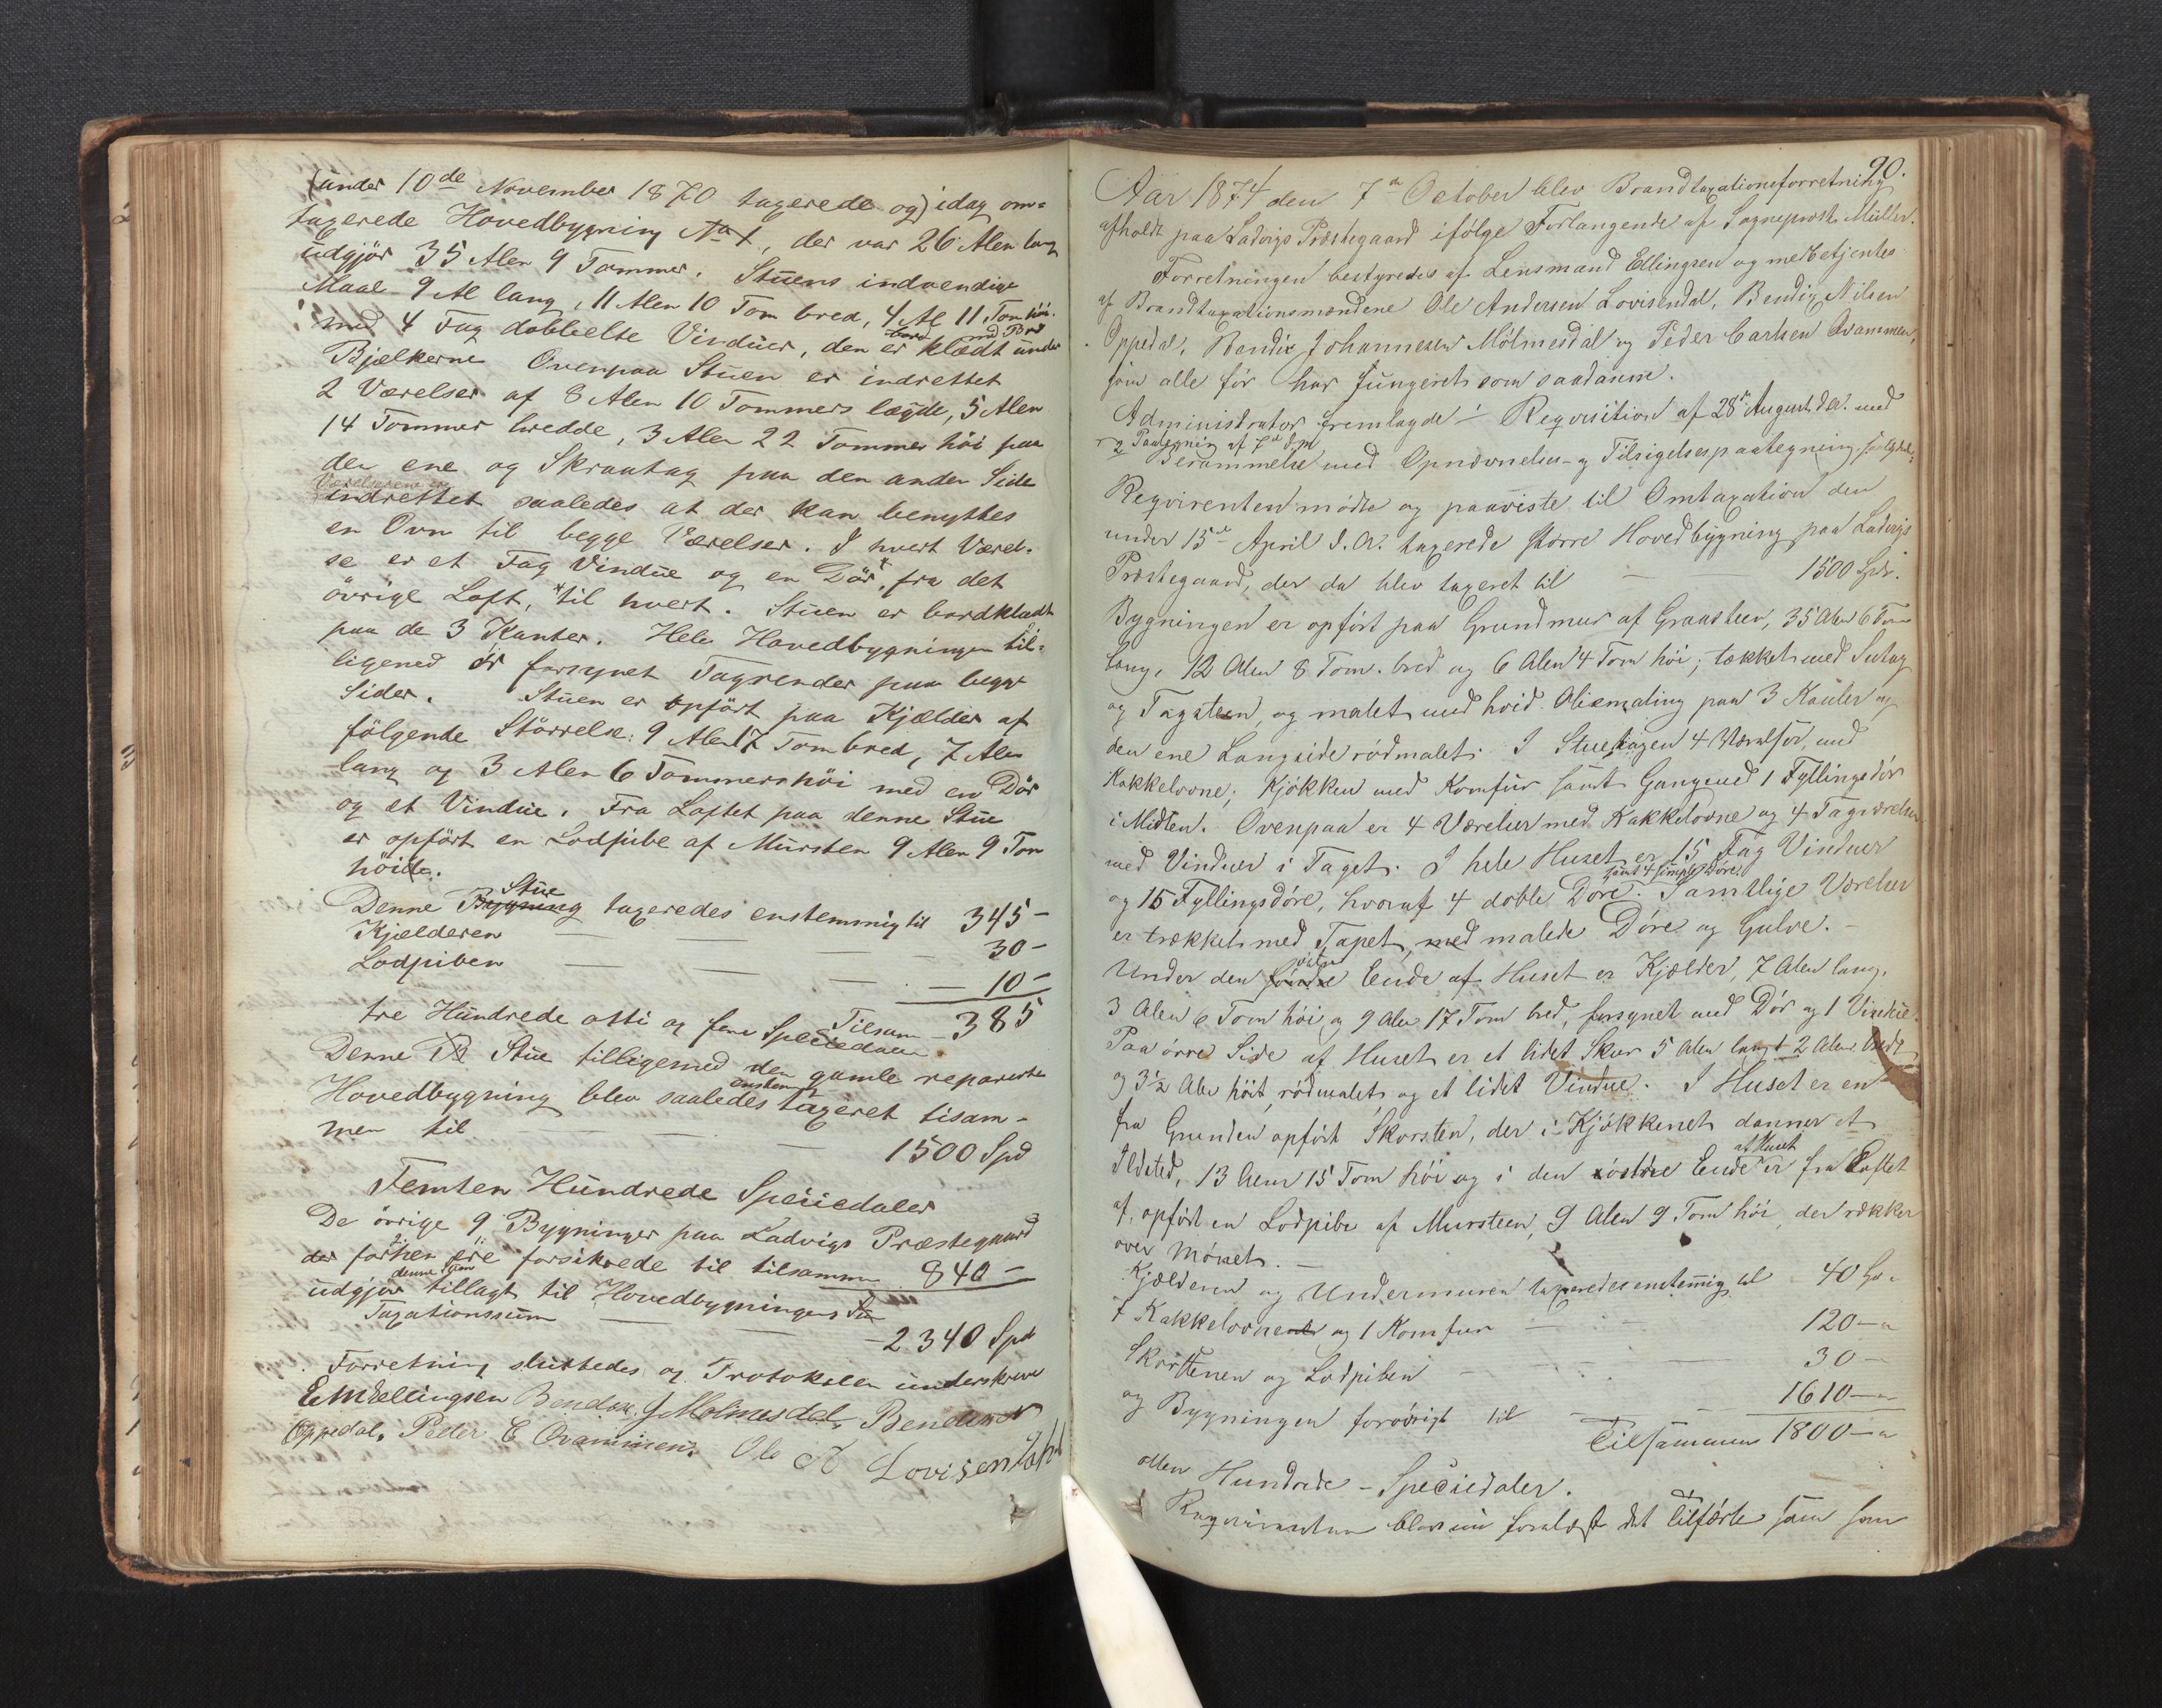 (under 10de November 1870 taxerede og) idag om=
taxerede Hovedbygning No 1, der var 26 Alen lang
udgjør 35 Alen 9 Tommer. Stuens indvendige
Maal 9 Al lang, 11 Alen 10 Tom bred, 4 Al 11 Tom høi.
med 4 Fag dobbelte Vinduer, den er klædt under
Bjælkerne Ovenpaa Stuen er indrettet
2 Værelser af 8 Alen 10 Tommers lægde, 5 Alen
14 Tommer bredde, 3 Alen 22 Tommer höi paa
den ene og Skraatag paa den anden Side
Værelserne er
indrettet saaledes at der kan benyttes
en Ovn til begge Værelser. I hvert Værel-
se er et Fag Vindue og en Dör, fra det
övrige Loft, til hvert. Stuen er bordklædt
paa de 3 Kanter. Hele Hovedbygningen til=
ligemed er forsynet Tagrender paa begge
Sider. Stuen er opført paa Kjælder af
fölgende Störrelse: 9 Alen 17 Tom bred, 7 Alen
lang og 3 Alen 6 Tommers höi med en Dör
og et Vindue. Fra Loftet paa denne Stue
er opført en Lodpibe af Mursten 9 Alen 9 Tom
höide.
Stue
Denne Bygning taxeredes enstemmig til 345 -
Kjælderen — — — 30 -
Lodpiben — — — 10 -
Tilsam - 385
tre Hundrede otti og fem Speciedaler
Denne B Stue tilligemed den gamle reparerte
Hovedbygning blev saaledes enstem taxeret tilsam-
men til — — — 1500 Spd
Femten Hundrede Speciedaler
De övrige 9 Bygninger paa Ladvigs Præstegaard
der forhen ere forsikrede til tilsammen 840 -
udgjør denne Sum tillagt til Hovedbygningens
Taxationssum — — 2340 Spd
Forretning sluttedes og Protokolen underskreve
EMEllingsen Bendix J Mølmesdal, Bendix N
Oppedal, Peder C Qvammen, Ole A Lovisendahl
90.
Aar 1874 den 7de October blev Brandtaxationsforretning
afholdt paa Ladvigs Præstegaard ifölge Forlangende af Sogneprest Müller.
Forretningen bestyredes af Lensmand Ellingsen og medbetjentes
af Brandtaxationsmændene Ole Andersen Lovisendal, Bendix Nilsen
Oppedal, Bendix Johannesen Mölmesdal og Peder Carlsen Qvammen,
som alle för har fungeret som saadanne.
Administrator fremlagde: Reqvisition af 28de August d.A. med
Paategning af 7de
Berammelse med Opnævnelses- og Tilsigelsespaategning
Reqvirenten mödte og paaviste til Omtaxation den
under 15de April d.A. taxerede större Hovedbygning paa Ladvigs
Præstegaard, der da blev taxeret til — 1500 Spd.
Bygningen er opfört paa Grundmur af Graasteen, 35 Alen 6 Tom
lang, 12 Alen 8 Tom. bred og 6 Alen 4 Tom höi; tækket med Sutag
og Tagsteen, og malet med hvid Oliemaling paa 3 Kanter og
den ene Langside rödmalet. I Stueetagen 4 Værelser, med
Kakkelovne; Kjökken med Komfur samt Gang med 1 Fyllingsdör
i Midten. Ovenpaa er 4 Værelser med Kakkelovne og 4 Tagværelser
med Vinduer i Taget. I hele Huset er 15 Fag Vinduer
samt 4 simple Döre.
og 15 Fyllingsdöre, hvoraf 4 doble Döre. Samtlige Værelser
er trækket med Tapet, med malede Döre og Gulve. —
Under den östre Ende af Huset er Kjælder, 7 Alen lang,
3 Alen 6 Tom höi og 9 Alen 17 Tom bred, forsynet med Dör og 1 Vindue.
Paa övre Side af Huset er et lidet Skur 5 Alen langt 2 Alen bredt
og 3½ Alen höit, rödmalet og et lidet Vindue. I Huset er en
fra Grunden opfört Skorsten, der i Kjökkenet danner et
Ildsted, 13 Alen 15 Tom höi og i den östre Ende af Huset er fra Loftet
af, opfört en Lodpibe af Mursteen, 9 Alen 9 Tom höi, der rækker
over Mönet. —
Kjælderen og Undermuren taxeredes enstemig til 40 Spd
7 Kakkelovne og 1 Komfur — — 120 — "
Skorstenen og Lodpiben — — 30 —
og Bygningen forövrigt til — — 1610 — "
Tilsammen 1800 — "
atten Hundrede - Speciedaler.
Reqvirenten blev nu forelæst det Tilförte som han